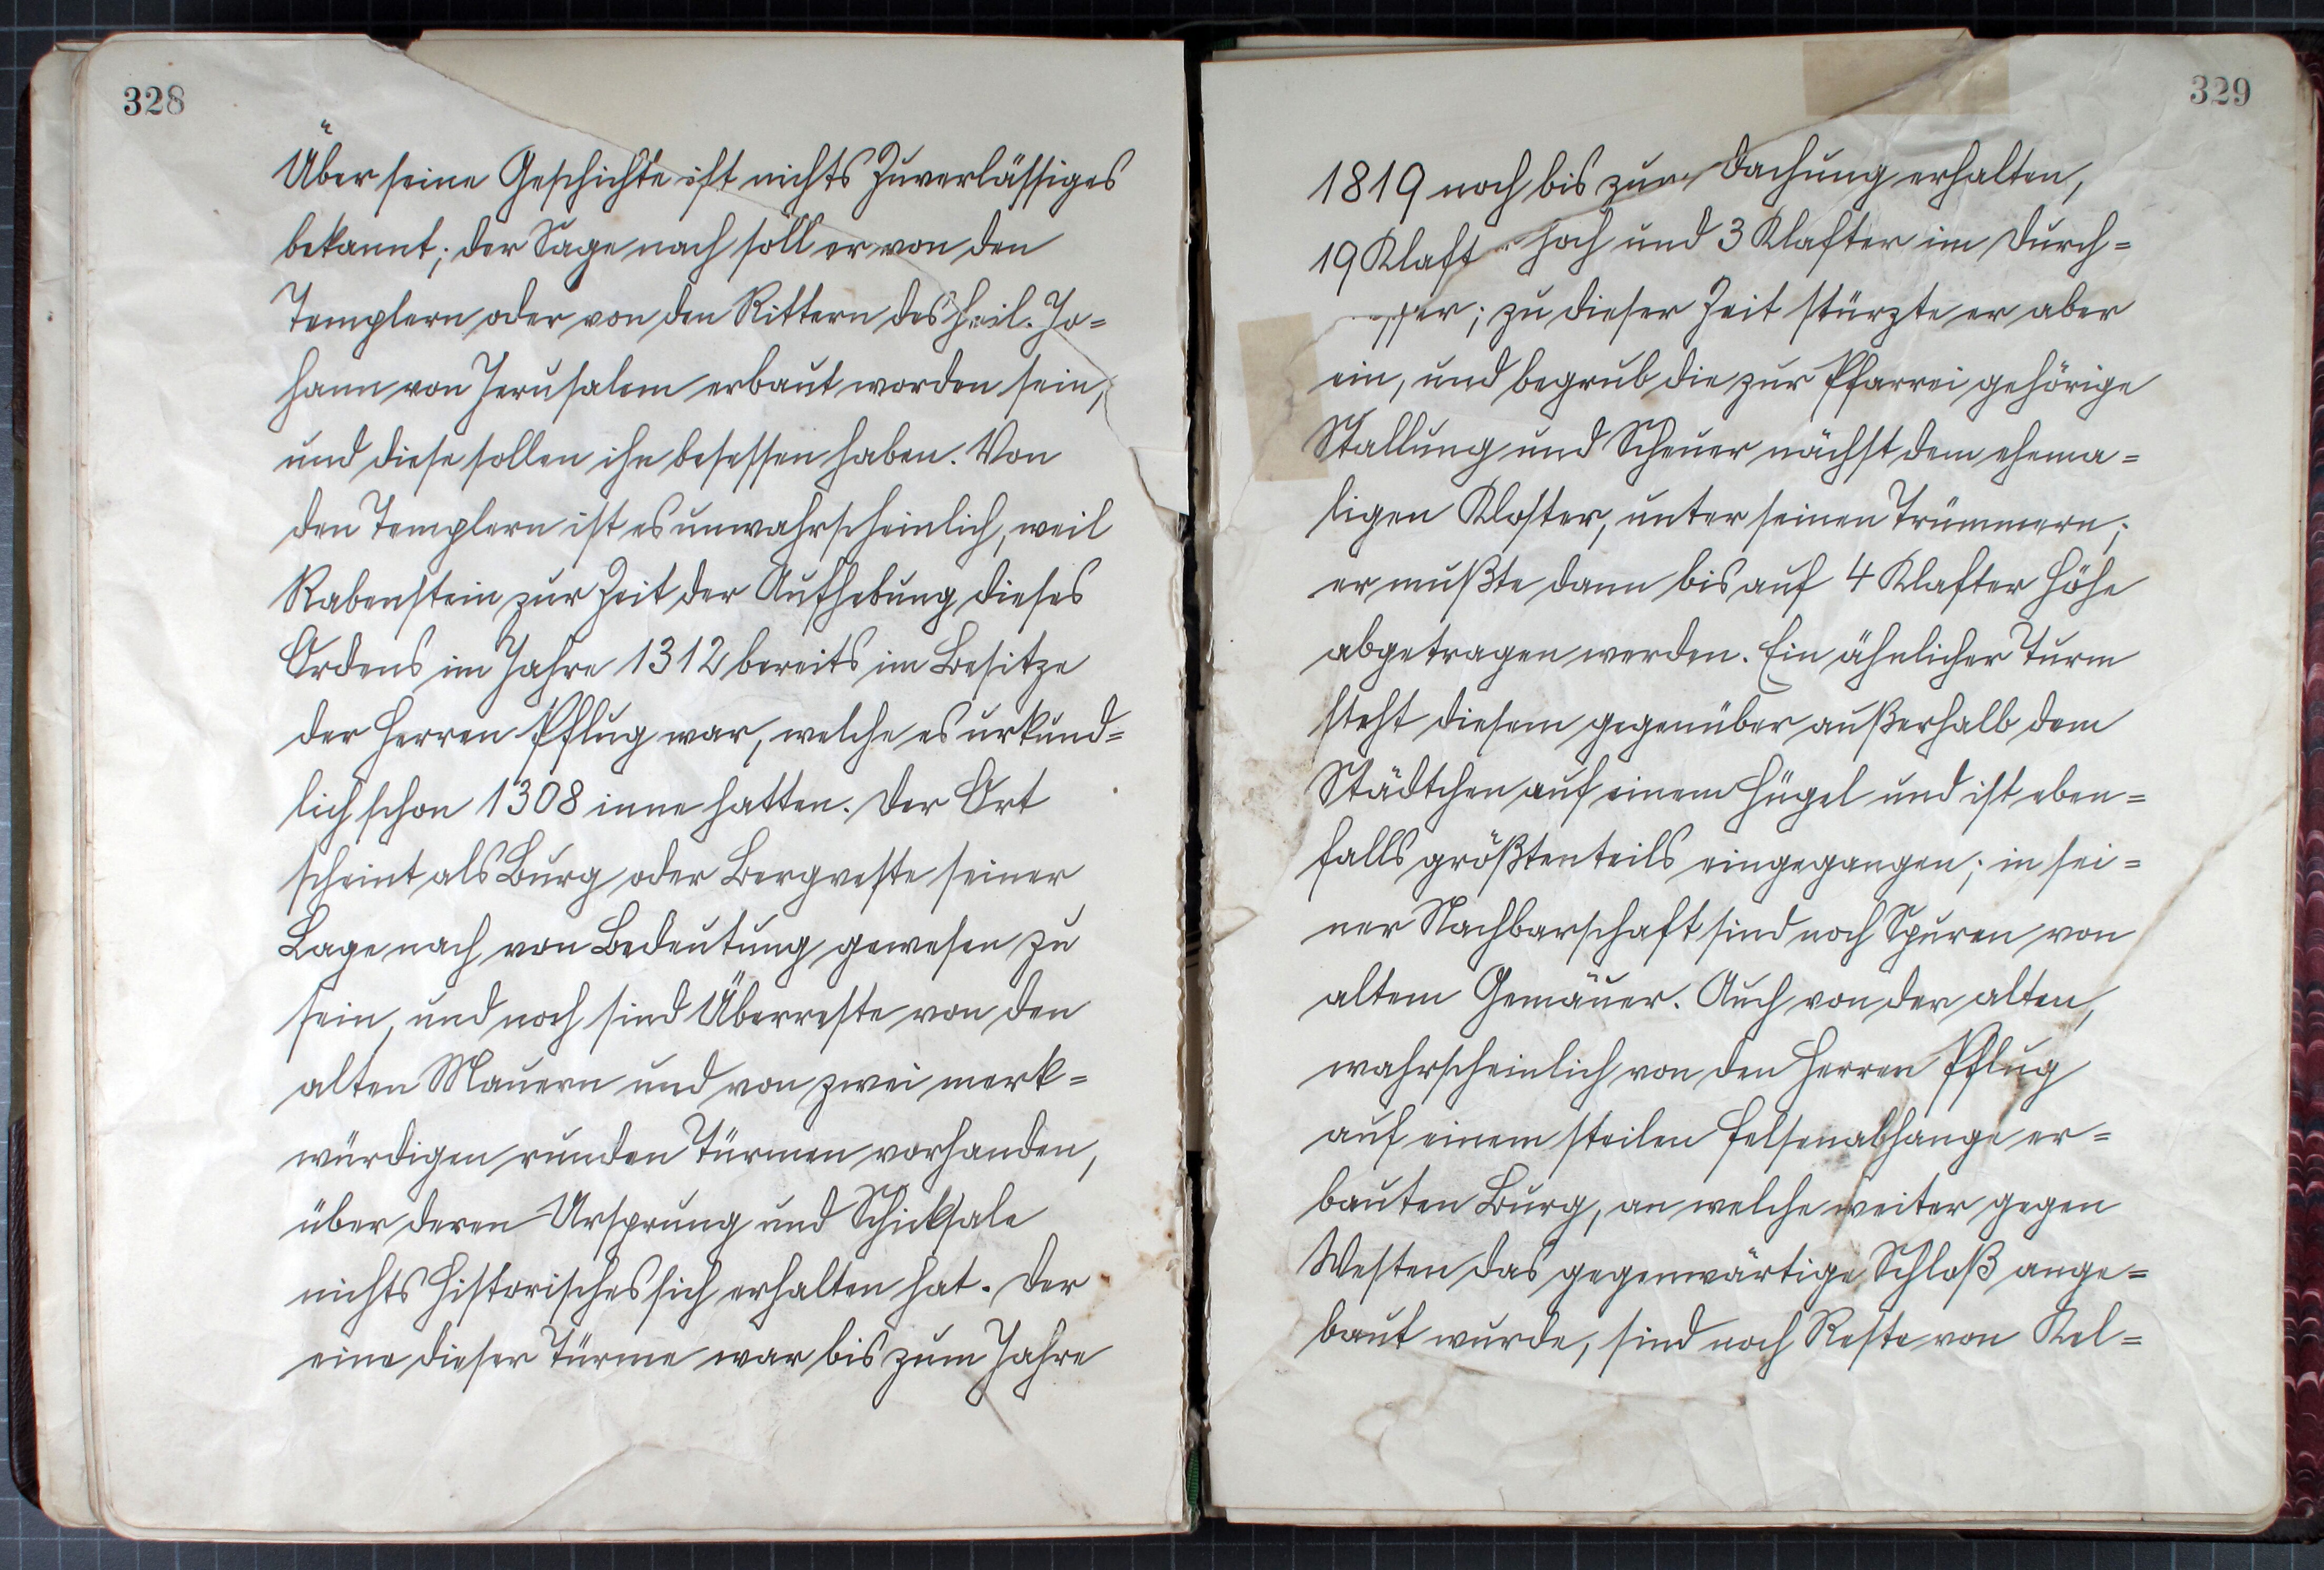 328
Über seine Geschichte ist nichts Zuverlässiges
bekannt; der Sage nach soll er von den
Templern oder von den Rittern des heil. Jo=
hann von Jerusalem erbaut worden sein,
und diese sollen ihn besessen haben. Von
den Templern ist es unwahrscheinlich, weil
Rabenstein zur Zeit der Aufhebung dieses
Ordens im Jahre 1312 bereits im Besitze
der Herren Pflug war, welche es urkund=
lich schon 1308 inne hatten. Der Ort
scheint als Burg oder Bergveste seiner
Lage nach von Bedeutung gewesen zu
sein, und noch sind Überreste von den
alten Mauern und von zwei merk=
würdigen runden Türmen vorhanden,
über deren Ursprung und Schicksale
nichts Historisches sich erhalten hat. Der
eine dieser Türme war bis zum Jahre
329
1819 noch bis zur Dachung erhalten,
19 Klafter hoch und 3 Klafter im Durch=
messer; zu dieser Zeit stürzte er aber
ein, und begrub die zur Pfarrei gehörige
Stallung und Scheuer nächst dem ehema=
ligen Kloster, unter seinen Trümmern;
er mußte dann bis auf 4 Klafter Höhe
abgetragen werden. Ein ähnlicher Turm
steht diesem gegenüber außerhalb dem
Städtchen auf einem Hügel und ist eben=
falls größtenteils eingegangen; in sei=
ner Nachbarschaft sind noch Spuren von
altem Gemäuer. Auch von der alten,
wahrscheinlich von den Herren Pflug
auf einem steilen Felsenabhange er=
bauten Burg, an welche weiter gegen
Westen das gegenwärtige Schloß ange=
baut wurde, sind noch Reste von Kel=